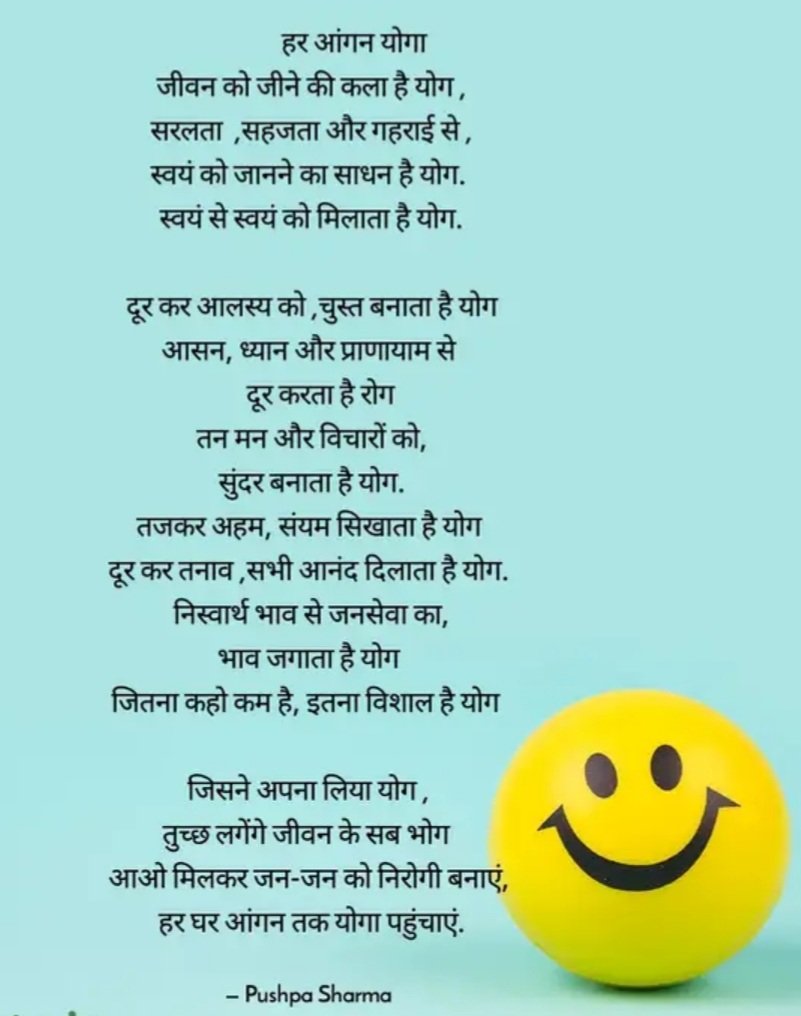 हर आंगन योगा
जीवन को जीने की कला है योग ,
सरलता ,सहजता और गहराई से ,
स्वयं को जानने का साधन है योग.
स्वयं से स्वयं को मिलाता है योग.
दूर कर आलस्य को ,चुस्त बनाता है योग
आसन, ध्यान और प्राणायाम से
दूर करता है रोग
तन मन और विचारों को,
सुंदर बनाता है योग.
तजकर अहम, संयम सिखाता है योग
दूर कर तनाव ,सभी आनंद दिलाता है योग.
निस्वार्थ भाव से जनसेवा का,
भाव जगाता है योग
जितना कहो कम है, इतना विशाल है योग
जिसने अपना लिया योग ,
तुच्छ लगेंगे जीवन के सब भोग
आओ मिलकर जन-जन को निरोगी बनाएं,
हर घर आंगन तक योगा पहुंचाएं.
– Pushpa Sharma